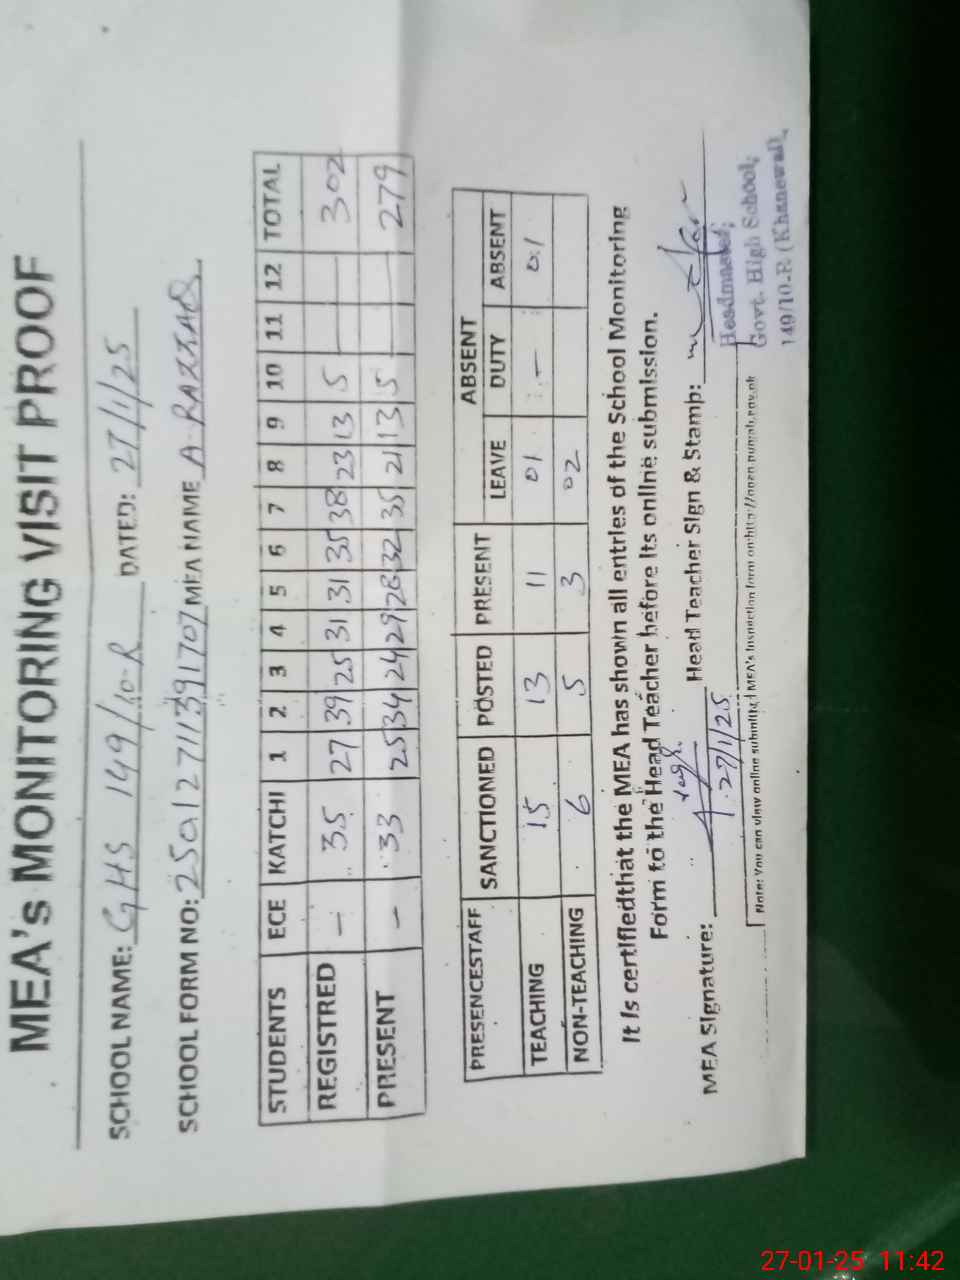 MEA's MONITORING VISIT PROOF
SCHOOL NAME: GHS 149/10-R DATED: 27/1/25
SCHOOL FORM NO: 25012711391707 MEA NAME A. RAZZAQ
STUDENTS ECE KATCHI 1 2 3 4 5 6 7 8 9 10 11 12 TOTAL
REGISTRED — 35 27 39 25 31 31 35 38 23 13 5 — 302
PRESENT — 33 25 34 24 29 28 32 35 21 13 5 — 279
PRESENCESTAFF SANCTIONED POSTED PRESENT ABSENT
LEAVE DUTY ABSENT
TEACHING 15 13 11 01 — 01
NON-TEACHING 6 5 3 02
It is certifiedthat the MEA has shown all entries of the School Monitoring
Form to the Head Teacher before its online submission.
MEA Signature: 27/1/25 Head Teacher Sign & Stamp:
Headmaster,
Govt. High School,
149/10-R (Khanewal).
Note: You can view online submitted MEA's Inspection form on:http://open.punjab.gov.pk
27-01-25 11:42